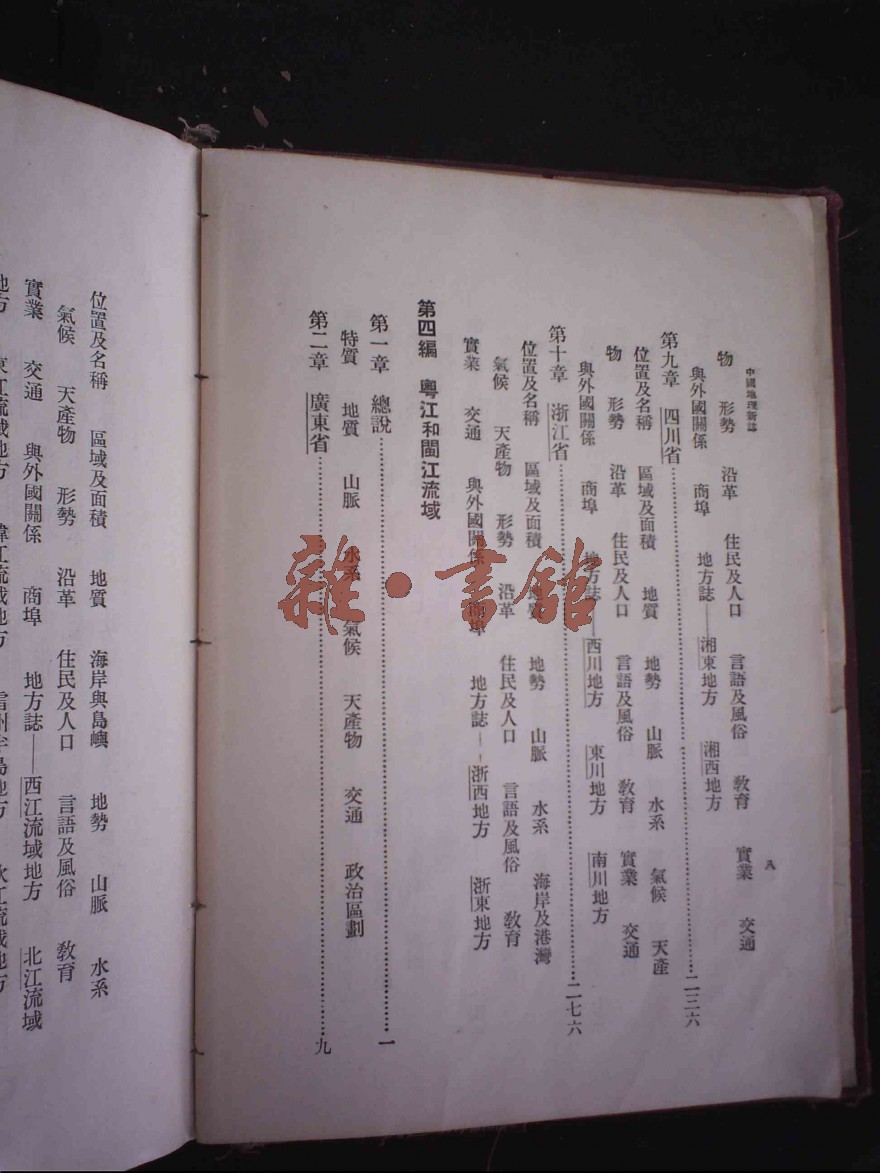 中國地理新誌
八
物　形勢　沿革　住民及人口　言語及風俗　教育　實業　交通
與外國關係　商埠　地方誌——湘東地方　湘西地方
第九章　四川省…………二三六
位置及名稱　區域及面積　地質　地勢　山脈　水系　氣候　天產
物　形勢　沿革　住民及人口　言語及風俗　教育　實業　交通
與外國關係　商埠　地方誌——西川地方　東川地方　南川地方
第十章　浙江省…………二七六
位置及名稱　區域及面積　地質　地勢　山脈　水系　海岸及港灣
氣候　天產物　形勢　沿革　住民及人口　言語及風俗　教育
實業　交通　與外國關係　商埠　地方誌——浙西地方　浙東地方
第四編　粵江和閩江流域
第一章　總說…………一
特質　地質　山脈　水系　氣候　天產物　交通　政治區劃
第二章　廣東省…………九
位置及名稱　區域及面積　地質　海岸與島嶼　地勢　山脈　水系
氣候　天產物　形勢　沿革　住民及人口　言語及風俗　教育
實業　交通　與外國關係　商埠　地方誌——西江流域地方　北江流域
地方　東江流域地方
雜·書館